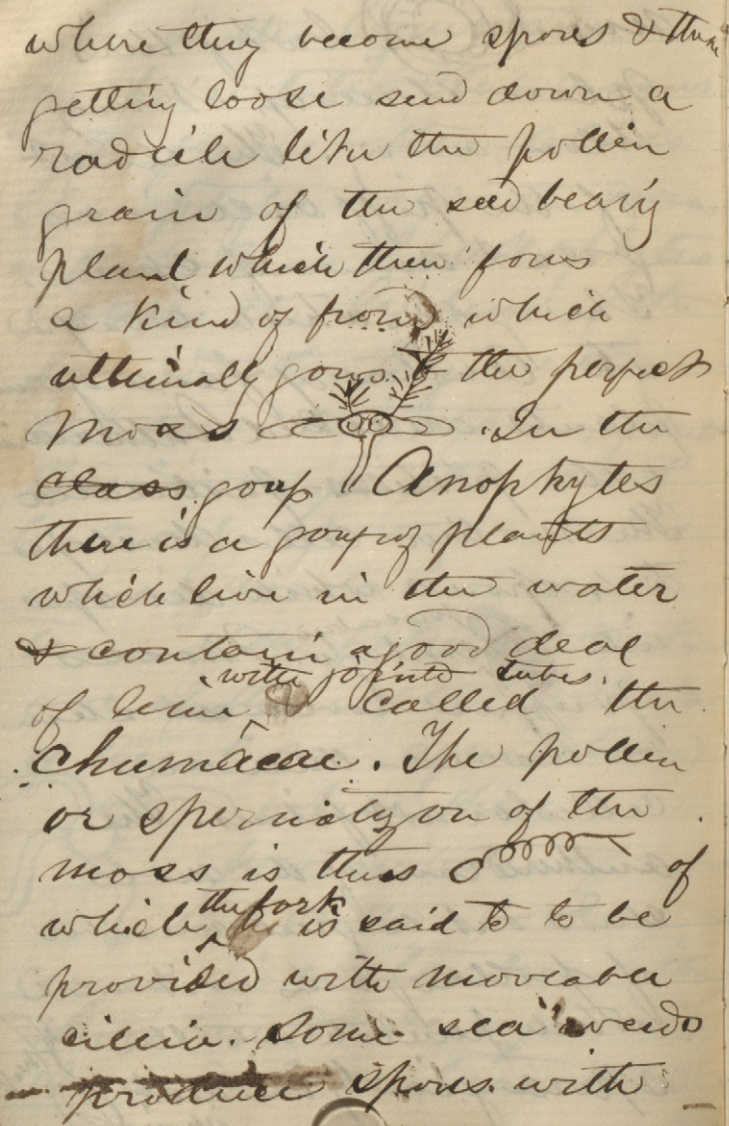 where they become spores & then
getting loose send down a
radicle like the pollen
grain of the seed bearing
plant which then forms
a kind of frond which
ultimally grows to the perfect
moss . In the
class group Anophytes
there is a group of plants
which live in the water
& contain a good deal
with jointed tubes.
of lime & called the
. The pollen
or spermatzon of the
moss is thus of
the fork
which is said to to be
provided with moveable
cillia. Some sea weeds
produce spores with